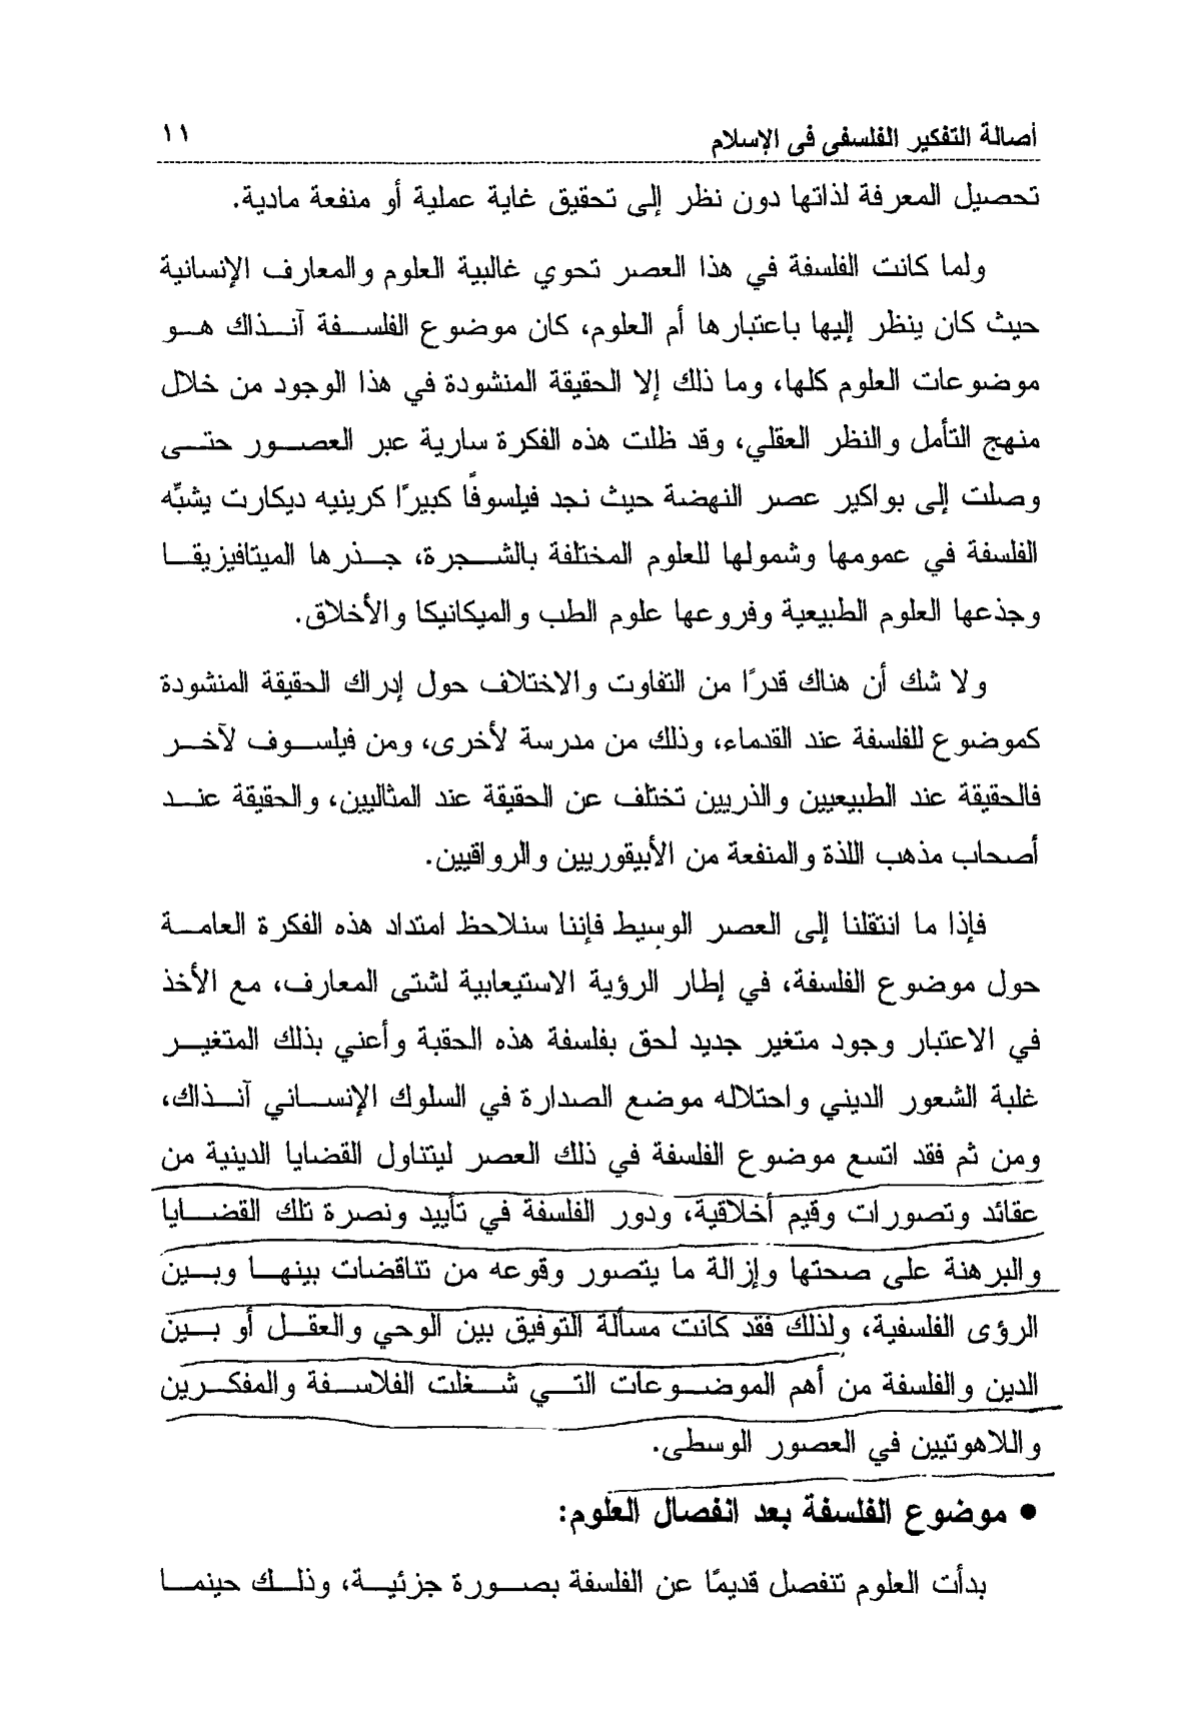 أصالة التفكير الفلسفى فى الإسلام ١١
تحصيل المعرفة لذاتها دون نظر إلى تحقيق غاية عملية أو منفعة مادية.
ولما كانت الفلسفة في هذا العصر تحوي غالبية العلوم والمعارف الإنسانية
حيث كان ينظر إليها باعتبارها أم العلوم، كان موضوع الفلسفة آنذاك هو
موضوعات العلوم كلها، وما ذلك إلا الحقيقة المنشودة في هذا الوجود من خلال
منهج التأمل والنظر العقلي، وقد ظلت هذه الفكرة سارية عبر العصور حتى
وصلت إلى بواكير عصر النهضة حيث نجد فيلسوفًا كبيرًا كرينيه ديكارت يشبِّه
الفلسفة في عمومها وشمولها للعلوم المختلفة بالشجرة، جذرها الميتافيزيقا
وجذعها العلوم الطبيعية وفروعها علوم الطب والميكانيكا والأخلاق.
ولا شك أن هناك قدرًا من التفاوت والاختلاف حول إدراك الحقيقة المنشودة
كموضوع للفلسفة عند القدماء، وذلك من مدرسة لأخرى، ومن فيلسوف لآخر
فالحقيقة عند الطبيعيين والذريين تختلف عن الحقيقة عند المثاليين، والحقيقة عند
أصحاب مذهب اللذة والمنفعة من الأبيقوريين والرواقيين.
فإذا ما انتقلنا إلى العصر الوسيط فإننا سنلاحظ امتداد هذه الفكرة العامة
حول موضوع الفلسفة، في إطار الرؤية الاستيعابية لشتى المعارف، مع الأخذ
في الاعتبار وجود متغير جديد لحق بفلسفة هذه الحقبة وأعني بذلك المتغير
غلبة الشعور الديني واحتلاله موضع الصدارة في السلوك الإنساني آنذاك،
ومن ثم فقد اتسع موضوع الفلسفة في ذلك العصر ليتناول القضايا الدينية من
عقائد وتصورات وقيم أخلاقية، ودور الفلسفة في تأييد ونصرة تلك القضايا
والبرهنة على صحتها وإزالة ما يتصور وقوعه من تناقضات بينها وبين
الرؤى الفلسفية، ولذلك فقد كانت مسألة التوفيق بين الوحي والعقل أو بين
الدين والفلسفة من أهم الموضوعات التي شغلت الفلاسفة والمفكرين
واللاهوتيين في العصور الوسطى.
• موضوع الفلسفة بعد انفصال العلوم:
بدأت العلوم تنفصل قديمًا عن الفلسفة بصورة جزئية، وذلك حينما